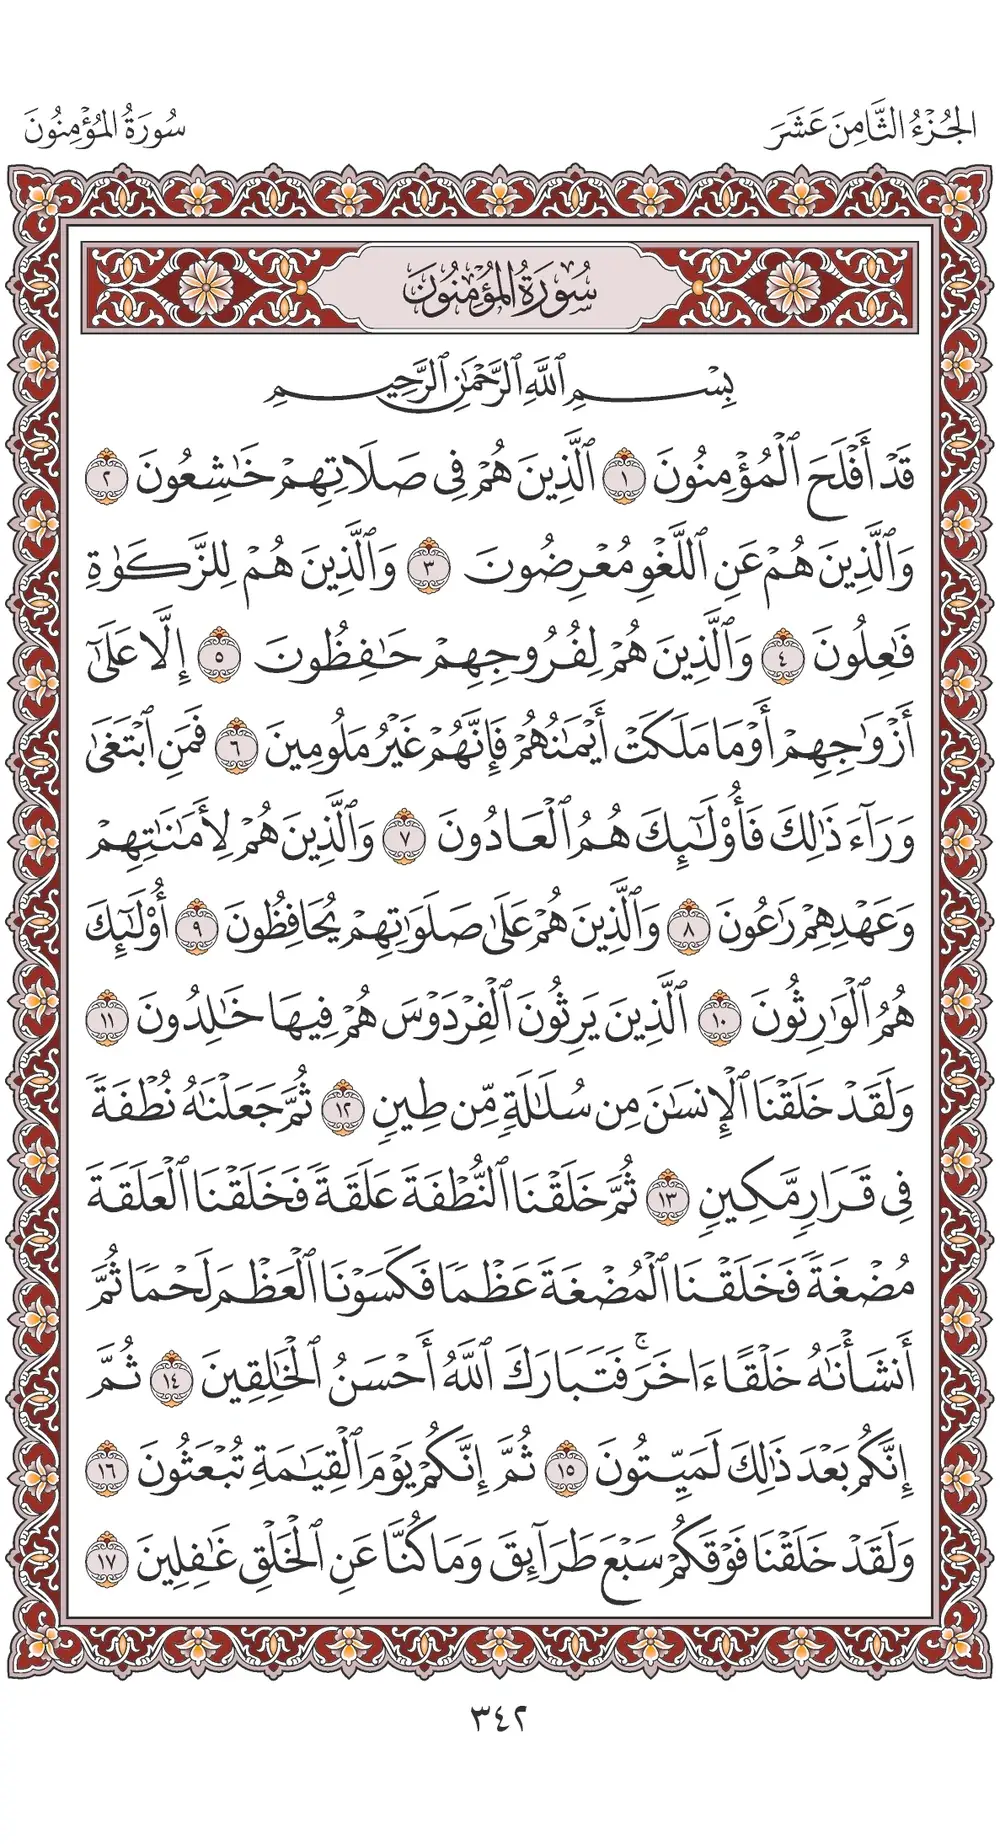 الجُزْءُ الثَّامِنَ عَشَرَ
سُورَةُ المُؤْمِنُونَ
سُورَةُ المُؤْمِنُونَ
بِسْمِ ٱللَّهِ ٱلرَّحْمَٰنِ ٱلرَّحِيمِ
قَدْ أَفْلَحَ ٱلْمُؤْمِنُونَ ١ ٱلَّذِينَ هُمْ فِي صَلَاتِهِمْ خَٰشِعُونَ ٢
وَٱلَّذِينَ هُمْ عَنِ ٱللَّغْوِ مُعْرِضُونَ ٣ وَٱلَّذِينَ هُمْ لِلزَّكَوٰةِ
فَٰعِلُونَ ٤ وَٱلَّذِينَ هُمْ لِفُرُوجِهِمْ حَٰفِظُونَ ٥ إِلَّا عَلَىٰٓ
أَزْوَٰجِهِمْ أَوْ مَا مَلَكَتْ أَيْمَٰنُهُمْ فَإِنَّهُمْ غَيْرُ مَلُومِينَ ٦ فَمَنِ ٱبْتَغَىٰ
وَرَآءَ ذَٰلِكَ فَأُو۟لَٰٓئِكَ هُمُ ٱلْعَادُونَ ٧ وَٱلَّذِينَ هُمْ لِأَمَٰنَٰتِهِمْ
وَعَهْدِهِمْ رَٰعُونَ ٨ وَٱلَّذِينَ هُمْ عَلَىٰ صَلَوَٰتِهِمْ يُحَافِظُونَ ٩ أُو۟لَٰٓئِكَ
هُمُ ٱلْوَٰرِثُونَ ١٠ ٱلَّذِينَ يَرِثُونَ ٱلْفِرْدَوْسَ هُمْ فِيهَا خَٰلِدُونَ ١١
وَلَقَدْ خَلَقْنَا ٱلْإِنسَٰنَ مِن سُلَٰلَةٍ مِّن طِينٍ ١٢ ثُمَّ جَعَلْنَٰهُ نُطْفَةً
فِي قَرَارٍ مَّكِينٍ ١٣ ثُمَّ خَلَقْنَا ٱلنُّطْفَةَ عَلَقَةً فَخَلَقْنَا ٱلْعَلَقَةَ
مُضْغَةً فَخَلَقْنَا ٱلْمُضْغَةَ عِظَٰمًا فَكَسَوْنَا ٱلْعِظَٰمَ لَحْمًا ثُمَّ
أَنشَأْنَٰهُ خَلْقًا ءَاخَرَۚ فَتَبَارَكَ ٱللَّهُ أَحْسَنُ ٱلْخَٰلِقِينَ ١٤ ثُمَّ
إِنَّكُم بَعْدَ ذَٰلِكَ لَمَيِّتُونَ ١٥ ثُمَّ إِنَّكُمْ يَوْمَ ٱلْقِيَٰمَةِ تُبْعَثُونَ ١٦
وَلَقَدْ خَلَقْنَا فَوْقَكُمْ سَبْعَ طَرَآئِقَ وَمَا كُنَّا عَنِ ٱلْخَلْقِ غَٰفِلِينَ ١٧
٣٤٢